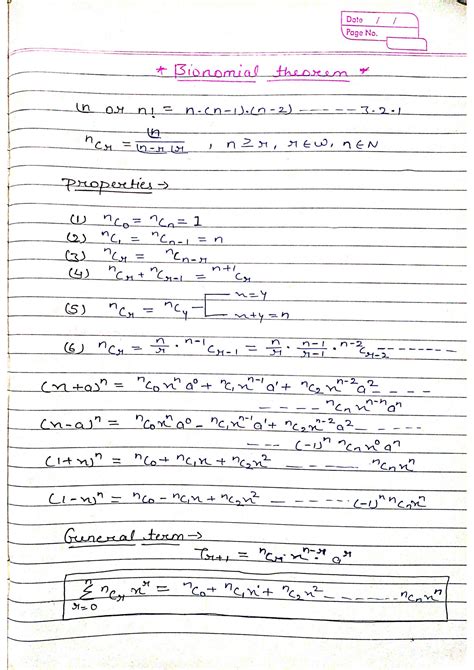 Date / /
Page No.
* Bionomial theorem *
⌊n or n! = n·(n-1)·(n-2) ------ 3·2·1
ⁿCᵣ = ⌊n / ⌊n-r ⌊r , n ≥ r, r ∈ W, n ∈ N
Properties →
(1) ⁿC₀ = ⁿCₙ = 1
(2) ⁿC₁ = ⁿCₙ₋₁ = n
(3) ⁿCᵣ = ⁿCₙ₋ᵣ
(4) ⁿCᵣ + ⁿCᵣ₋₁ = ⁿ⁺¹Cᵣ
x = y
(5) ⁿCᵣ = ⁿCy
x + y = n
(6) ⁿCᵣ = n/r · ⁿ⁻¹Cᵣ₋₁ = n/r · n-1/r-1 · ⁿ⁻²Cᵣ₋₂ --------
(x+a)ⁿ = ⁿC₀xⁿa⁰ + ⁿC₁xⁿ⁻¹a¹ + ⁿC₂xⁿ⁻²a² ----
---- ⁿCₙxⁿ⁻ⁿaⁿ
(x-a)ⁿ = ⁿC₀xⁿa⁰ - ⁿC₁xⁿ⁻¹a¹ + ⁿC₂xⁿ⁻²a² ----
--- (-1)ⁿ ⁿCₙx⁰aⁿ
(1+x)ⁿ = ⁿC₀ + ⁿC₁x + ⁿC₂x² ------ ⁿCₙxⁿ
(1-x)ⁿ = ⁿC₀ - ⁿC₁x + ⁿC₂x² ------ (-1)ⁿ ⁿCₙxⁿ
General term →
Tᵣ₊₁ = ⁿCᵣ · xⁿ⁻ʳ · aʳ
n
Σ ⁿCᵣ xʳ = ⁿC₀ + ⁿC₁x¹ + ⁿC₂x² ------ ⁿCₙxⁿ
r=0